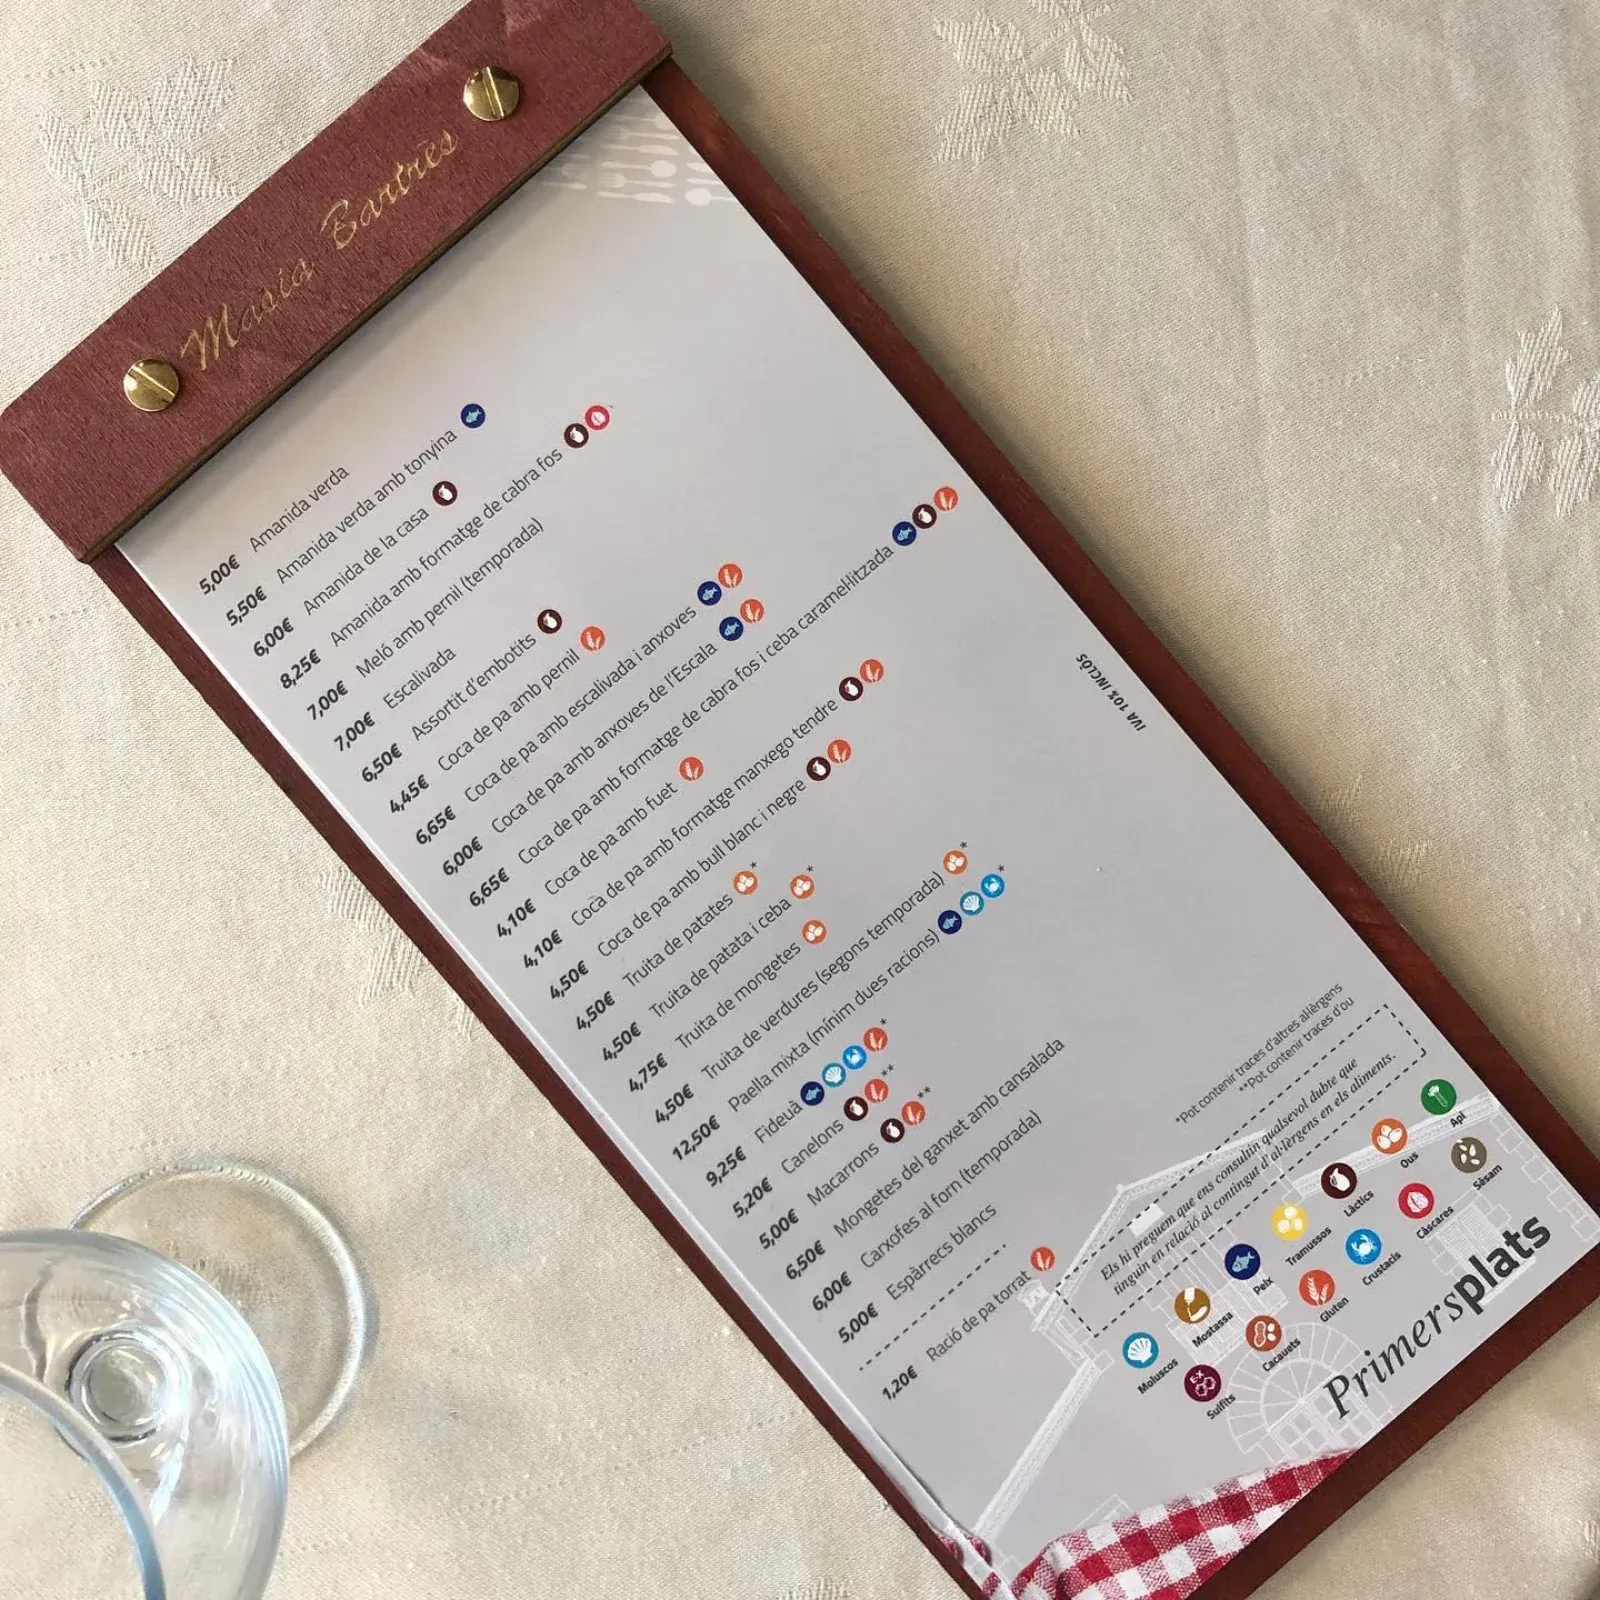 Masia Bartrès
5,00€ Amanida verda
5,50€ Amanida verda amb tonyina
6,00€ Amanida de la casa
8,25€ Amanida amb formatge de cabra fos
7,00€ Meló amb pernil (temporada)
7,00€ Escalivada
6,50€ Assortit d'embotits
4,45€ Coca de pa amb pernil
6,65€ Coca de pa amb escalivada i anxoves
6,00€ Coca de pa amb anxoves de l'Escala
6,65€ Coca de pa amb formatge de cabra fos i ceba carameŀlitzada
4,10€ Coca de pa amb fuet
4,10€ Coca de pa amb formatge manxego tendre
4,50€ Coca de pa amb bull blanc i negre
4,50€ Truita de patates *
4,50€ Truita de patata i ceba *
4,75€ Truita de mongetes
4,50€ Truita de verdures (segons temporada) *
12,50€ Paella mixta (mínim dues racions) *
9,25€ Fideuà *
5,20€ Canelons **
5,00€ Macarrons **
6,50€ Mongetes del ganxet amb cansalada
6,00€ Carxofes al forn (temporada)
5,00€ Espàrrecs blancs
1,20€ Ració de pa torrat
IVA 10% INCLÒS
*Pot contenir traces d'altres aŀlèrgens
**Pot contenir traces d'ou
Els hi preguem que ens consultin qualsevol dubte que
tinguin en relació al contingut d'al·lèrgens en els aliments.
Moluscos Mostassa Peix Tramussos Làctics Ous Api
EX
Sulfits Cacauets Gluten Crustacis Càscares Sèsam
Primersplats